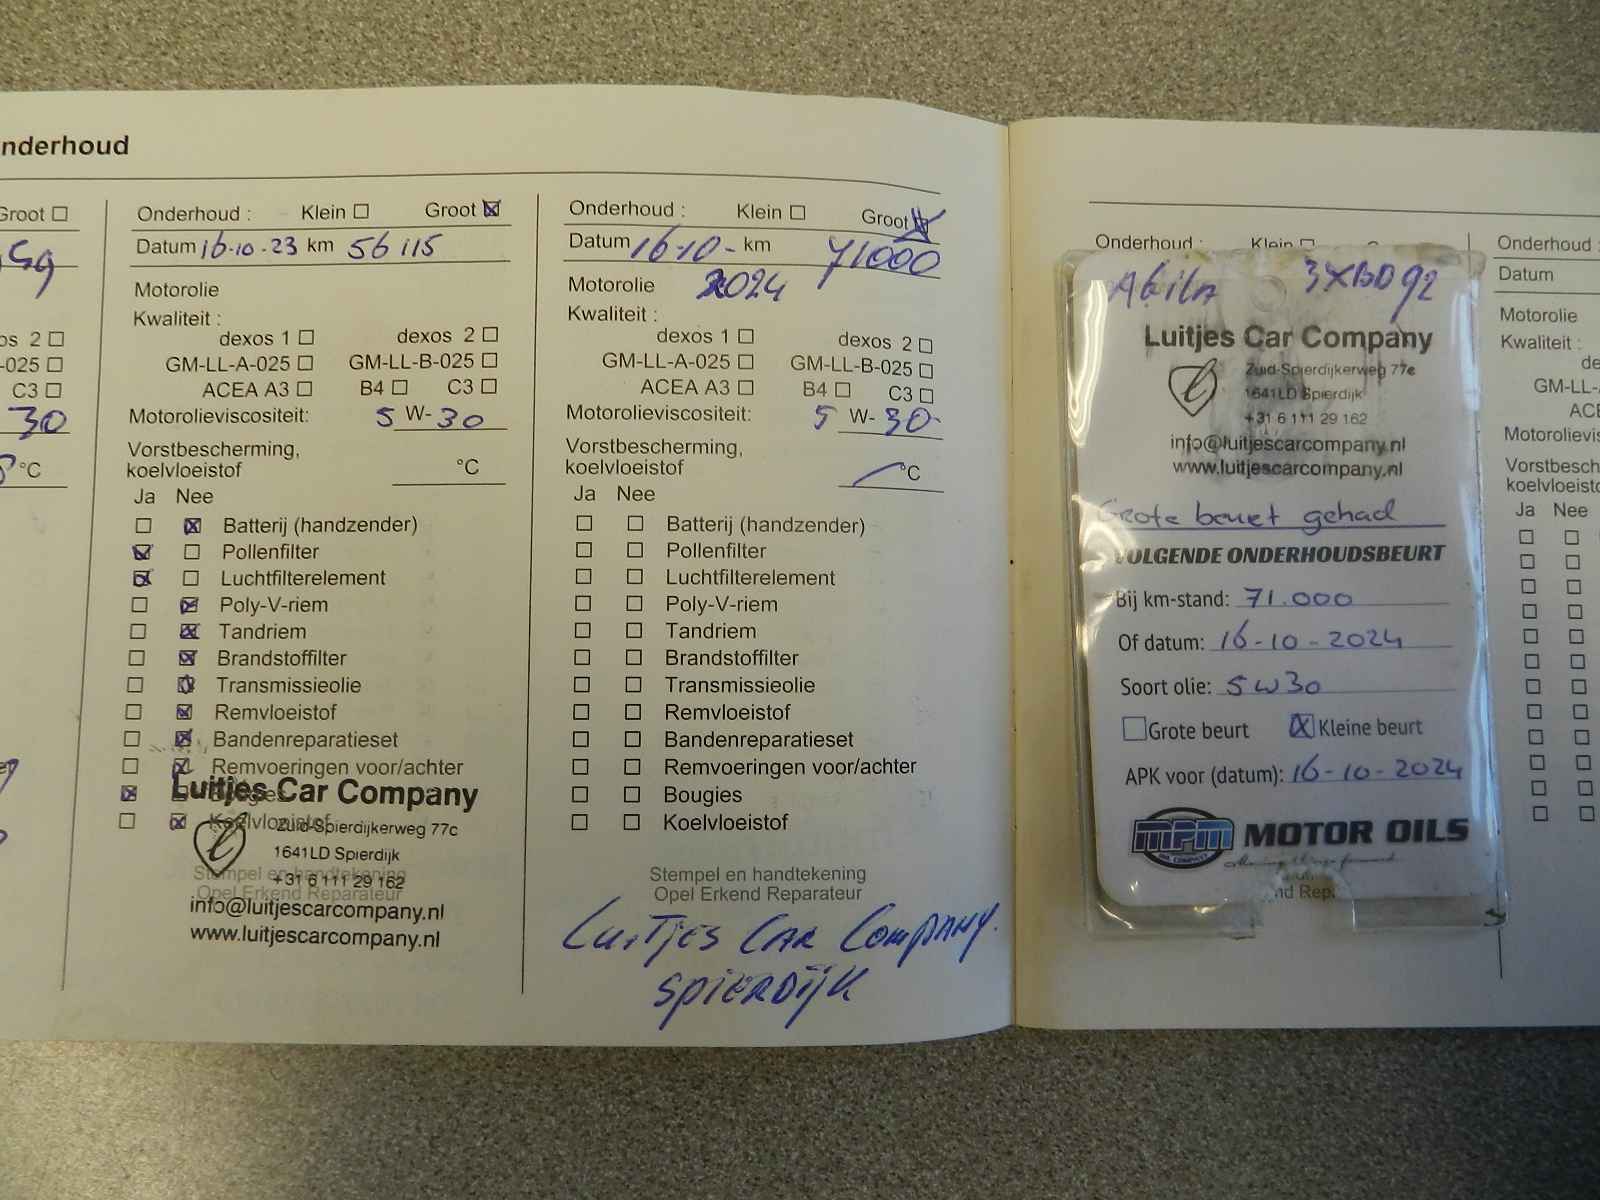 nderhoud
Groot
30
°C
Onderhoud : Klein Groot
Datum 16-10-23 km 56115
Motorolie
Kwaliteit :
dexos 1 dexos 2
GM-LL-A-025 GM-LL-B-025
ACEA A3 B4 C3
Motorolieviscositeit: 5 W-30
Vorstbescherming,
koelvloeistof °C
Ja Nee
Batterij (handzender)
Pollenfilter
Luchtfilterelement
Poly-V-riem
Tandriem
Brandstoffilter
Transmissieolie
Remvloeistof
Bandenreparatieset
Remvoeringen voor/achter
Bougies
Koelvloeistof
Luitjes Car Company
Zuid-Spierdijkerweg 77c
1641LD Spierdijk
Stempel en handtekening
+31 6 111 29 162
Opel Erkend Reparateur
info@luitjescarcompany.nl
www.luitjescarcompany.nl
Onderhoud : Klein Groot
Datum 16-10- km 71000
Motorolie 2024
Kwaliteit :
dexos 1 dexos 2
GM-LL-A-025 GM-LL-B-025
ACEA A3 B4 C3
Motorolieviscositeit: 5 W-30-
Vorstbescherming,
koelvloeistof °C
Ja Nee
Batterij (handzender)
Pollenfilter
Luchtfilterelement
Poly-V-riem
Tandriem
Brandstoffilter
Transmissieolie
Remvloeistof
Bandenreparatieset
Remvoeringen voor/achter
Bougies
Koelvloeistof
Stempel en handtekening
Opel Erkend Reparateur
Luitjes Car Company.
Spierdijk
Onderhoud : Klein
3XBD92
Luitjes Car Company
Zuid-Spierdijkerweg 77c
1641LD Spierdijk
+31 6 111 29 162
info@luitjescarcompany.nl
www.luitjescarcompany.nl
Grote beurt gehad
VOLGENDE ONDERHOUDSBEURT
Bij km-stand: 71.000
Of datum: 16-10-2024
Soort olie: 5W30
Grote beurt Kleine beurt
APK voor (datum): 16-10-2024
MPM MOTOR OILS
OIL COMPANY
Moving things forward
nd Rep
Onderhoud :
Datum
Motorolie
Kwaliteit :
de
GM-LL-
ACE
Motorolievis
Vorstbesch
koelvloeisto
Ja Nee